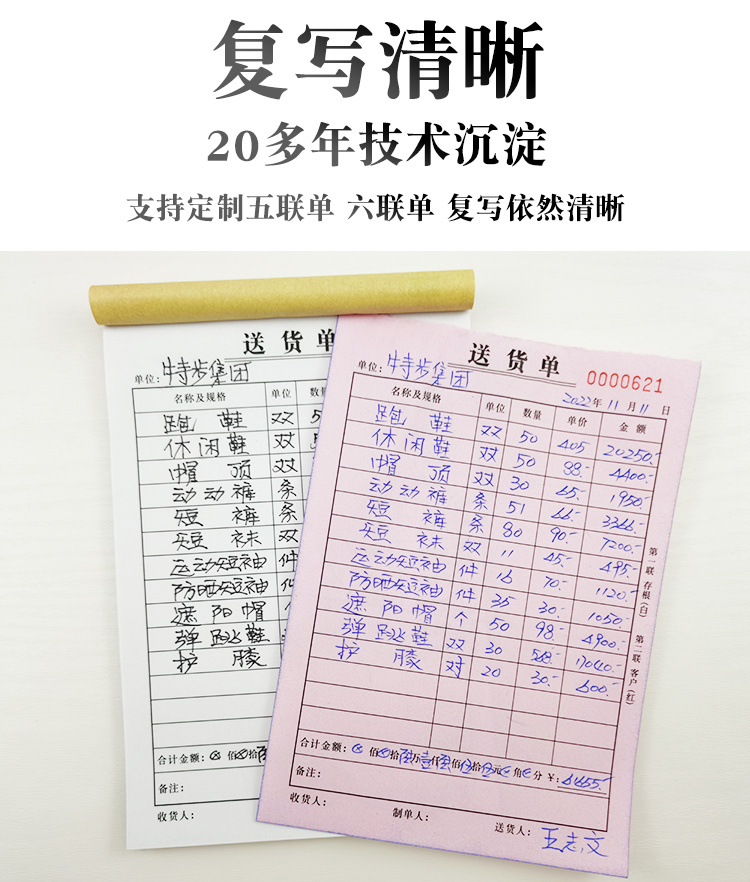 复写清晰
20多年技术沉淀
支持定制五联单 六联单 复写依然清晰
送货单
单位：特步集团
名称及规格 单位 数量
跑鞋 双 5
休闲鞋 对 5
帽顶 对
动动裤 条
短裤 条
短袜 双
运动短袖 件
防晒短袖 件
遮阳帽 个
弹跳鞋
护膝
合计金额： 佰 拾
备注：
收货人：
送货单
0000621
单位：特步集团
2022年11月11日
名称及规格 单位 数量 单价 金额
跑鞋 双 50 405 20250.-
休闲鞋 对 50 88.- 4400.-
帽顶 对 30 65.- 1950.-
动动裤 条 51 66.- 3366.-
短裤 条 80 90.- 7200.-
短袜 双 11 45.- 495.-
运动短袖 件 16 70.- 1120.-
防晒短袖 件 35 30.- 1050.-
遮阳帽 个 50 98.- 4900.-
弹跳鞋 双 30 568.- 17040.-
护膝 对 20 30.- 600.-
第一联 存根(白) 第二联 客户(红)
合计金额： 佰 拾 万 仟 佰 拾 元 角 分 ￥:
备注：
收货人： 制单人： 送货人：王志文